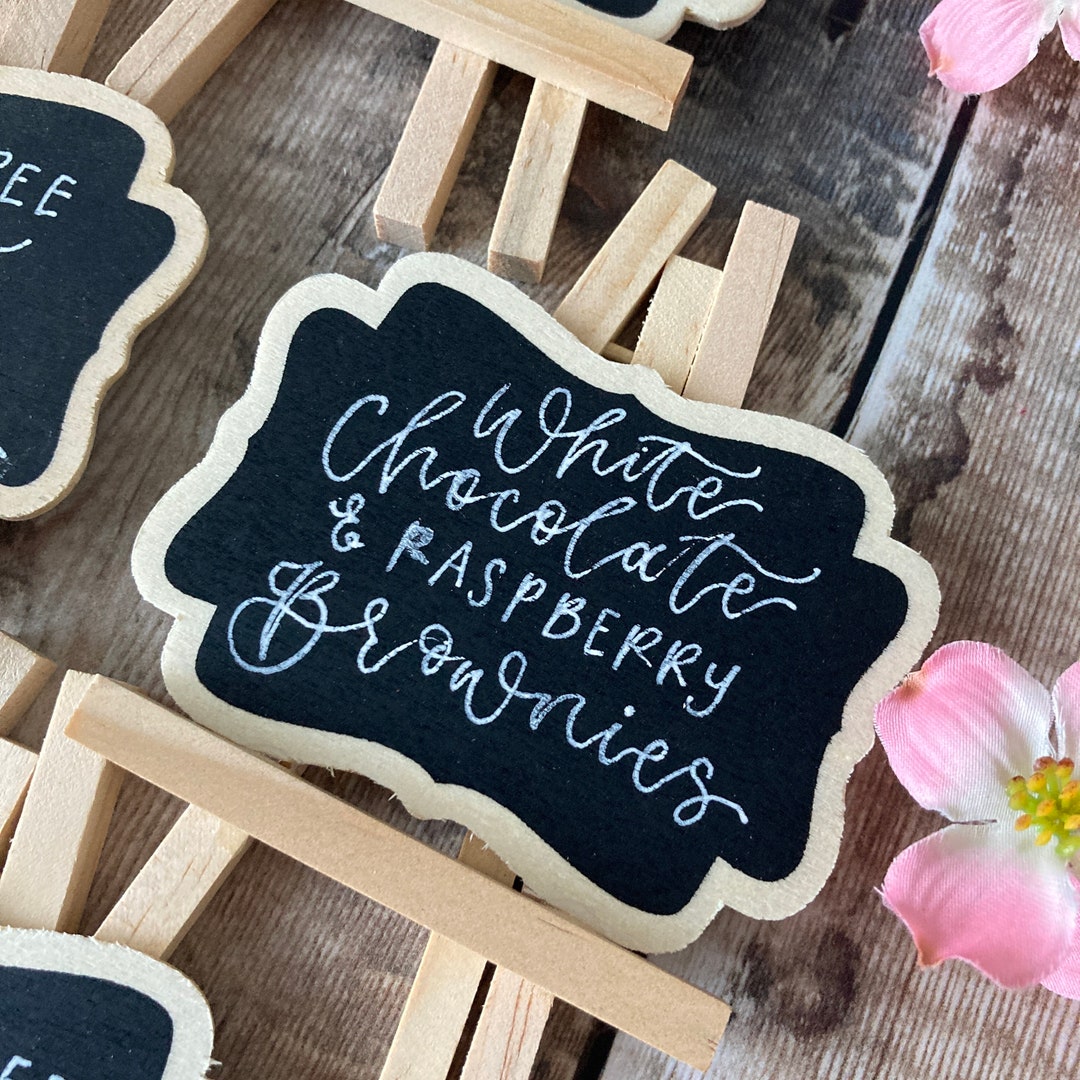 White
Chocolate
& RASPBERRY
Brownies